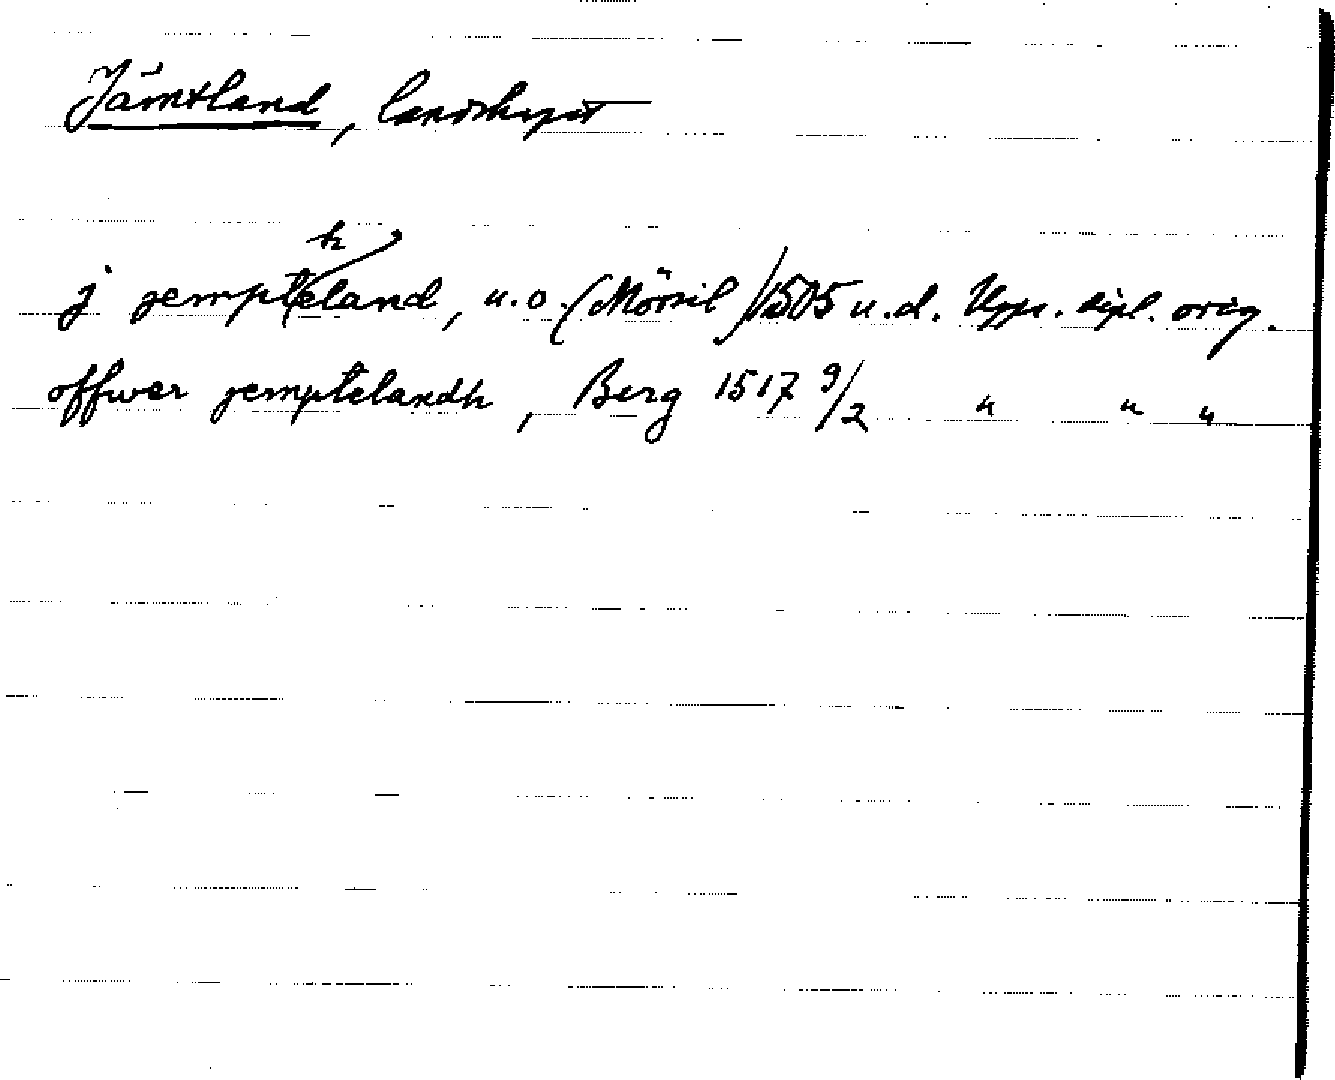 Jämtland, landskapet
j jemptheland, u.o. (Mörsil) 1505 u.d. Upps. dipl. orig.
offwer jemptelandh, Berg 1517 9/2 " " "